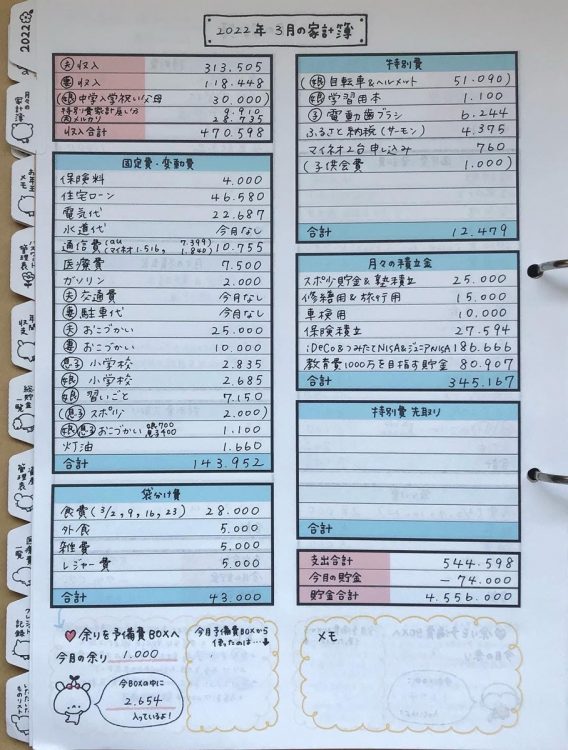 2022年 3月の家計簿
2022
月々の家計簿
メモ
管理表
総貯金一覧
管理表
一覧
記録
ものリスト
夫 収入 313.505
妻 収入 118.448
(娘 中学入学祝い父母 30.000)
特別費家計戻し分 9.910
夫 メルカリ 28.735
収入合計 470.598
固定費・変動費
保険料 4.000
住宅ローン 46.580
電気代 22.687
水道代 今月なし
通信費(au 7.399 マイネオ1.516, 1.840) 10.755
医療費 7.500
ガソリン 2.000
夫 交通費 今月なし
妻 駐車代 今月なし
夫 おこづかい 25.000
妻 おこづかい 10.000
息子 小学校 2.835
娘 小学校 2.685
娘 習いごと 7.150
(息子 スポ少 2.000)
娘 息子 おこづかい 娘700 息子400 1.100
灯油 1.660
合計 143.952
袋分け費
食費(3/2,9,16,23) 28.000
外食 5.000
雑費 5.000
レジャー費 5.000
合計 43.000
♥余りを予備費BOXへ
今月の余り 1.000
今BOXの中に
2.654
入っているよ!
今月予備費BOXから
使ったのは…
特別費
(娘 自転車&ヘルメット 51.090)
娘 学習用本 1.100
子 電動歯ブラシ 6.244
ふるさと納税(サーモン) 4.375
マイネオ2台申し込み 760
(子供会費 1.000)
合計 12.479
月々の積立金
スポ少貯金&塾積立 25.000
修繕用&旅行用 15.000
車検用 10.000
保険積立 27.594
iDeCo&つみたてNISA&ジュニアNISA 186.666
教育費1000万を目指す貯金 80.907
合計 345.167
特別費 先取り
合計
支出合計 544.598
今月の貯金 -74.000
貯金合計 4.556.000
メモ